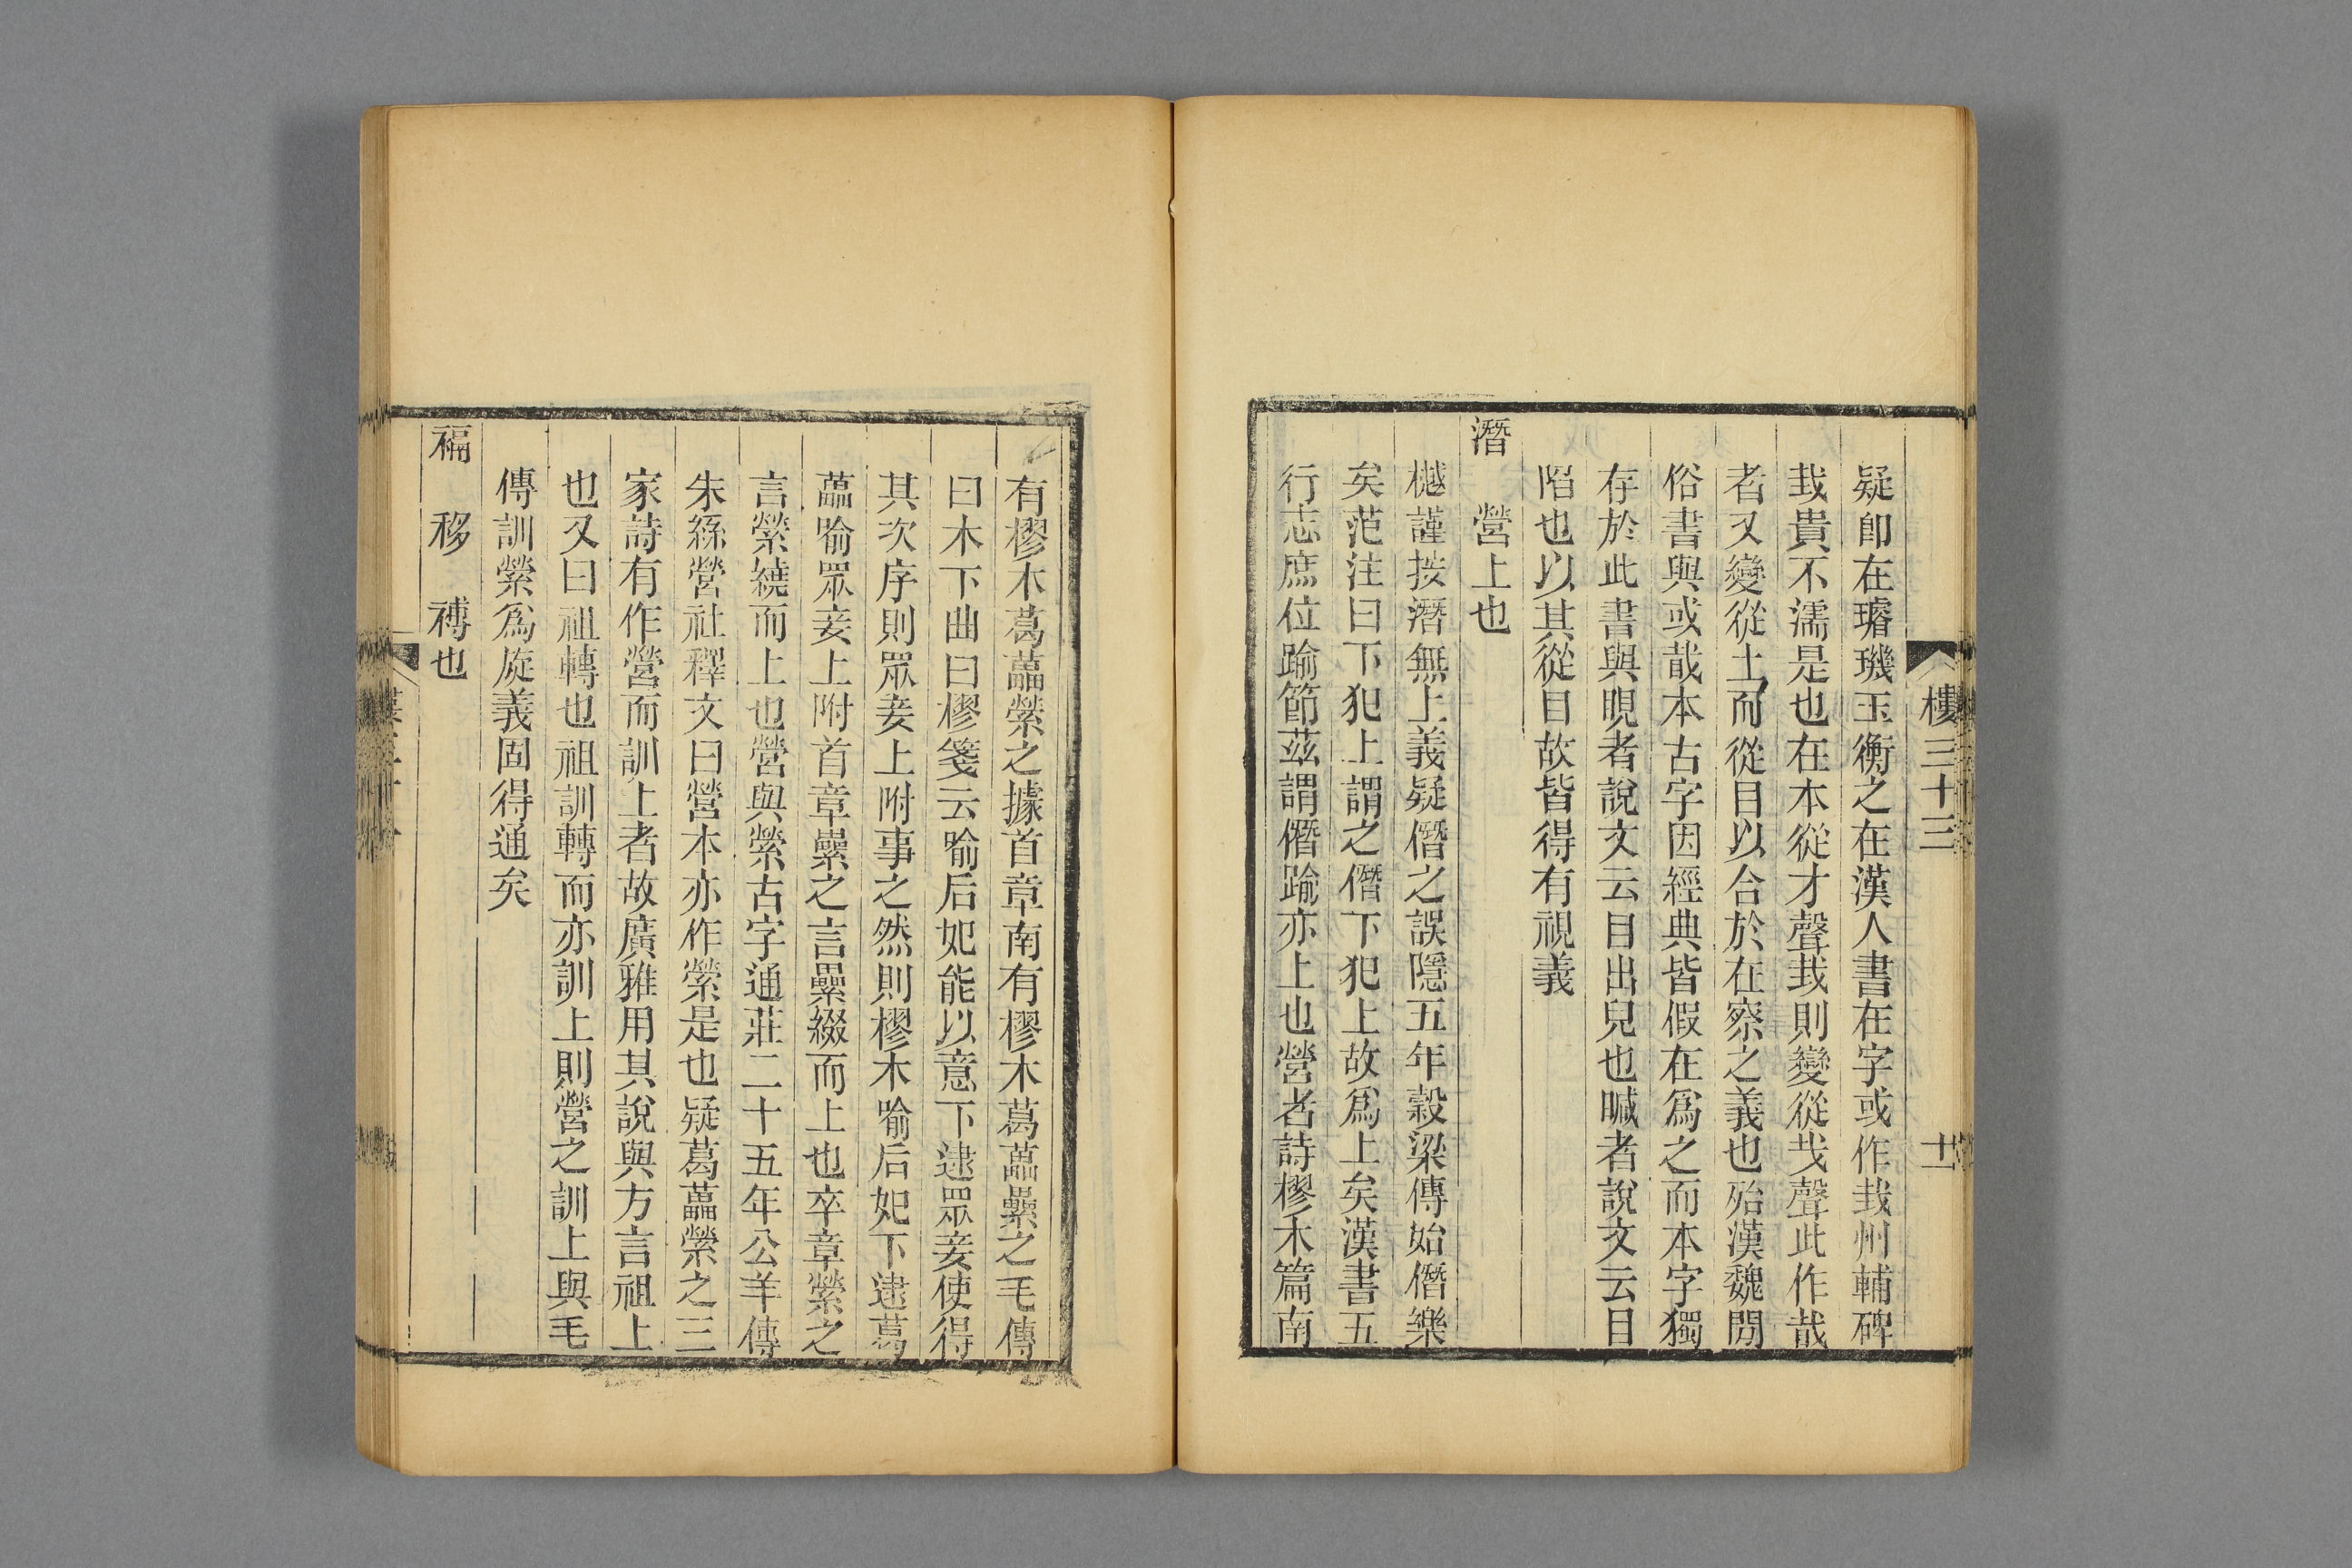 樓三十三
十一
疑卽在璿璣玉衡之在漢人書在字或作㦲州輔碑
㦲貴不濡是也在本從才聲㦲則變從𢦏聲此作㦲
者又變從土而從目以合於在察之義也殆漢魏閒
俗書與或㦲本古字因經典皆假在爲之而本字獨
存於此書與晛者說文云目出皃也瞰者說文云目
陷也以其從目故皆得有視義
潛　營上也
樾謹按潛無上義疑僭之誤隱五年穀梁傳始僭樂
矣范注曰下犯上謂之僭下犯上故爲上矣漢書五
行志庶位踰節茲謂僭踰亦上也營者詩樛木篇南
有樛木葛藟縈之據首章南有樛木葛藟纍之毛傳
曰木下曲曰樛箋云喻后妃能以意下逮眾妾使得
其次序則眾妾上附事之然則樛木喻后妃下逮葛
藟喻眾妾上附首章纍之言纍綴而上也卒章縈之
言縈繞而上也營與縈古字通莊二十五年公羊傳
朱絲營社釋文曰營本亦作縈是也疑葛藟縈之三
家詩有作營而訓上者故廣雅用其說與方言祖上
也又曰祖轉也祖訓轉而亦訓上則營之訓上與毛
傳訓縈爲旋義固得通矣
䙐　移　禣也